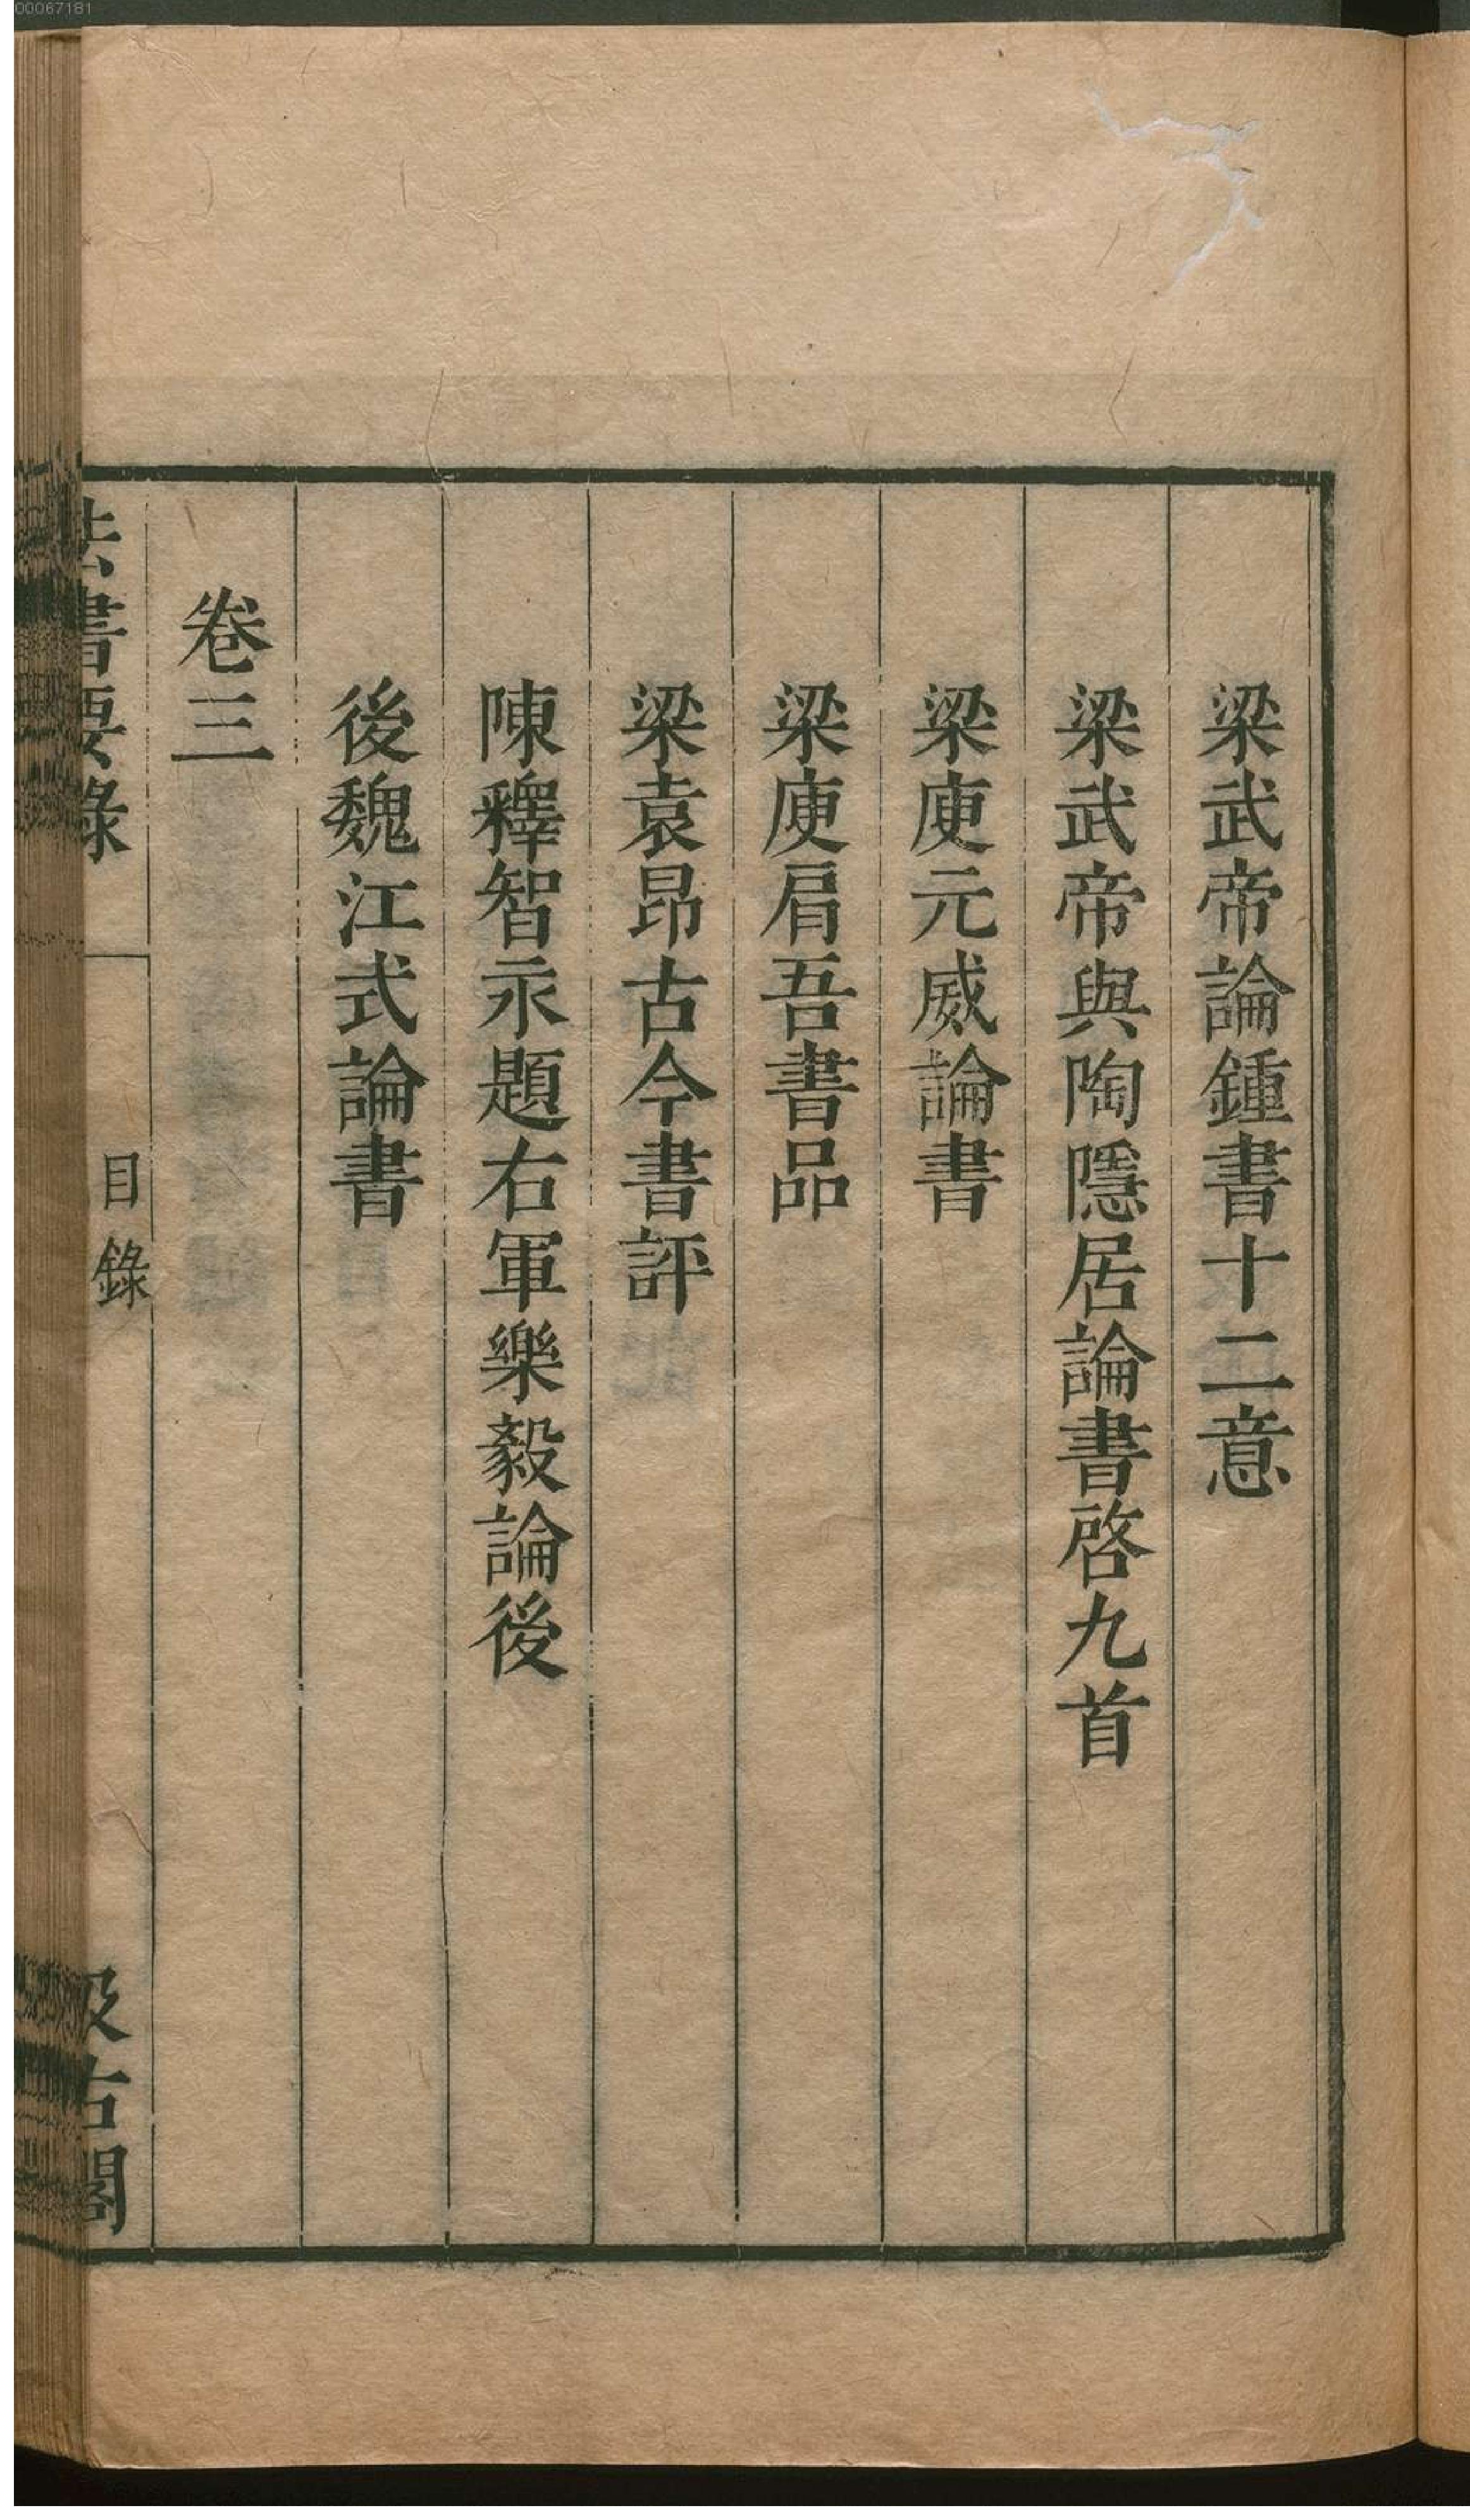 00067181
梁武帝論鍾書十二意
梁武帝與陶隱居論書啓九首
梁庾元威論書
梁庾肩吾書品
梁袁昂古今書評
陳釋智永題右軍樂毅論後
後魏江式論書
卷三
法書要錄
目錄
汲古閣